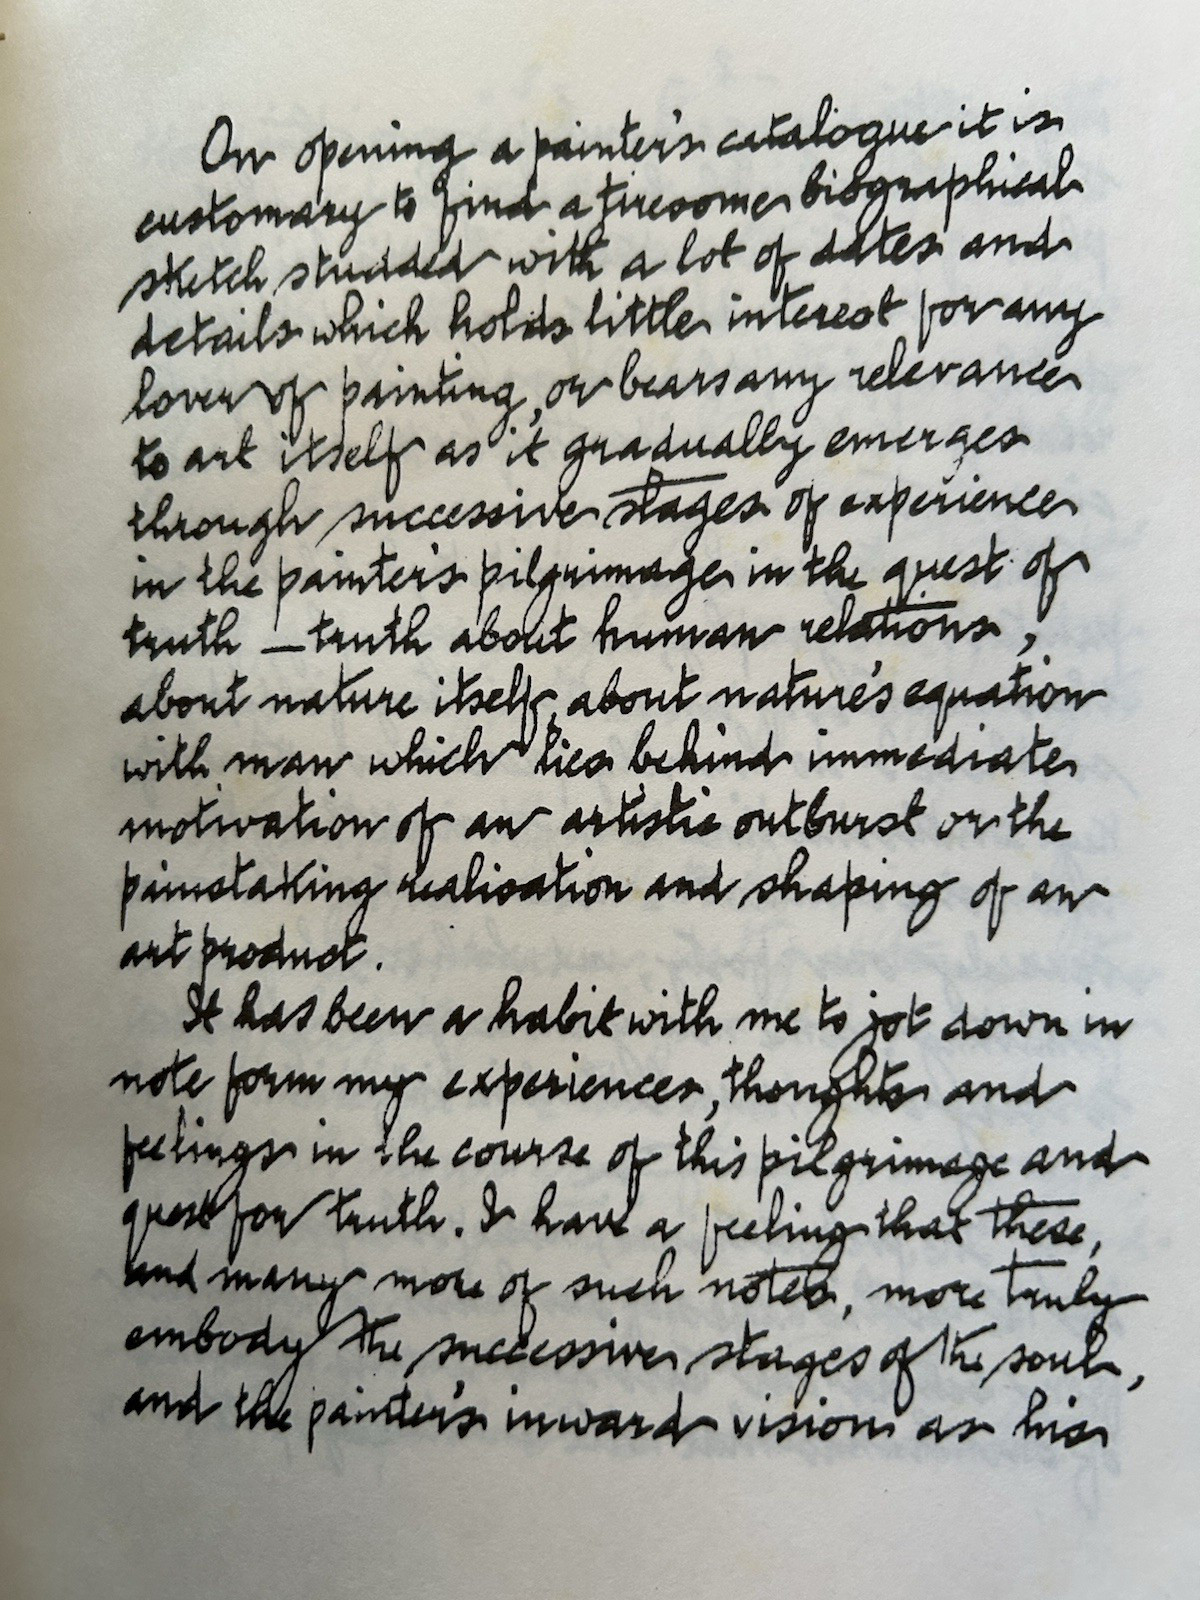 On opening a painter's catalogue it is
customary to find a tiresome biographical
sketch studded with a lot of dates and
details which holds little interest for any
lover of painting, or bears any relevance
to art itself as it gradually emerges
through successive stages of experience
in the painter's pilgrimage in the quest of
truth — truth about human relations,
about nature itself, about nature's equation
with man which lies behind immediate
motivation of an artistic outburst or the
painstaking realisation and shaping of an
art product.
It has been a habit with me to jot down in
note form my experiences, thoughts and
feelings in the course of this pilgrimage and
quest for truth. I have a feeling that these,
and many more of such notes, more truly
embody the successive stages of the soul,
and the painter's inward vision as his